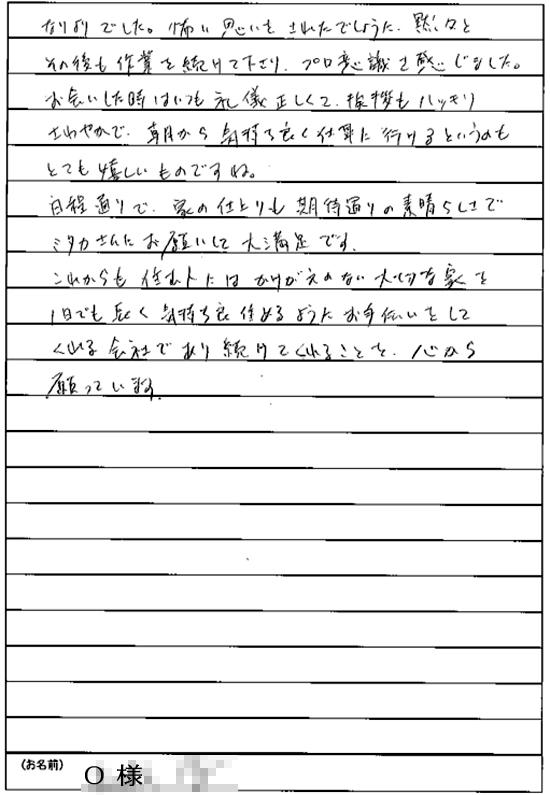 なりよりでした。怖い思いをされたでしょうに、黙々と
その後も作業を続けて下さり、プロ意識を感じました。
お会いした時はいつも礼儀正しくて、挨拶もハッキリ
さわやかで、朝から気持ち良く仕事に行けるというのも
とても嬉しいものですね。
日程通りで、家の仕上りも期待通りの素晴らしさで
ミタカさんにお願いして大満足です。
これからも住む人にはかけがえのない大切な家を
1日でも長く気持ち良住めるようにお手伝いをして
くれる会社であり続けてくれることを、心から
願っています。
(お名前) O 様